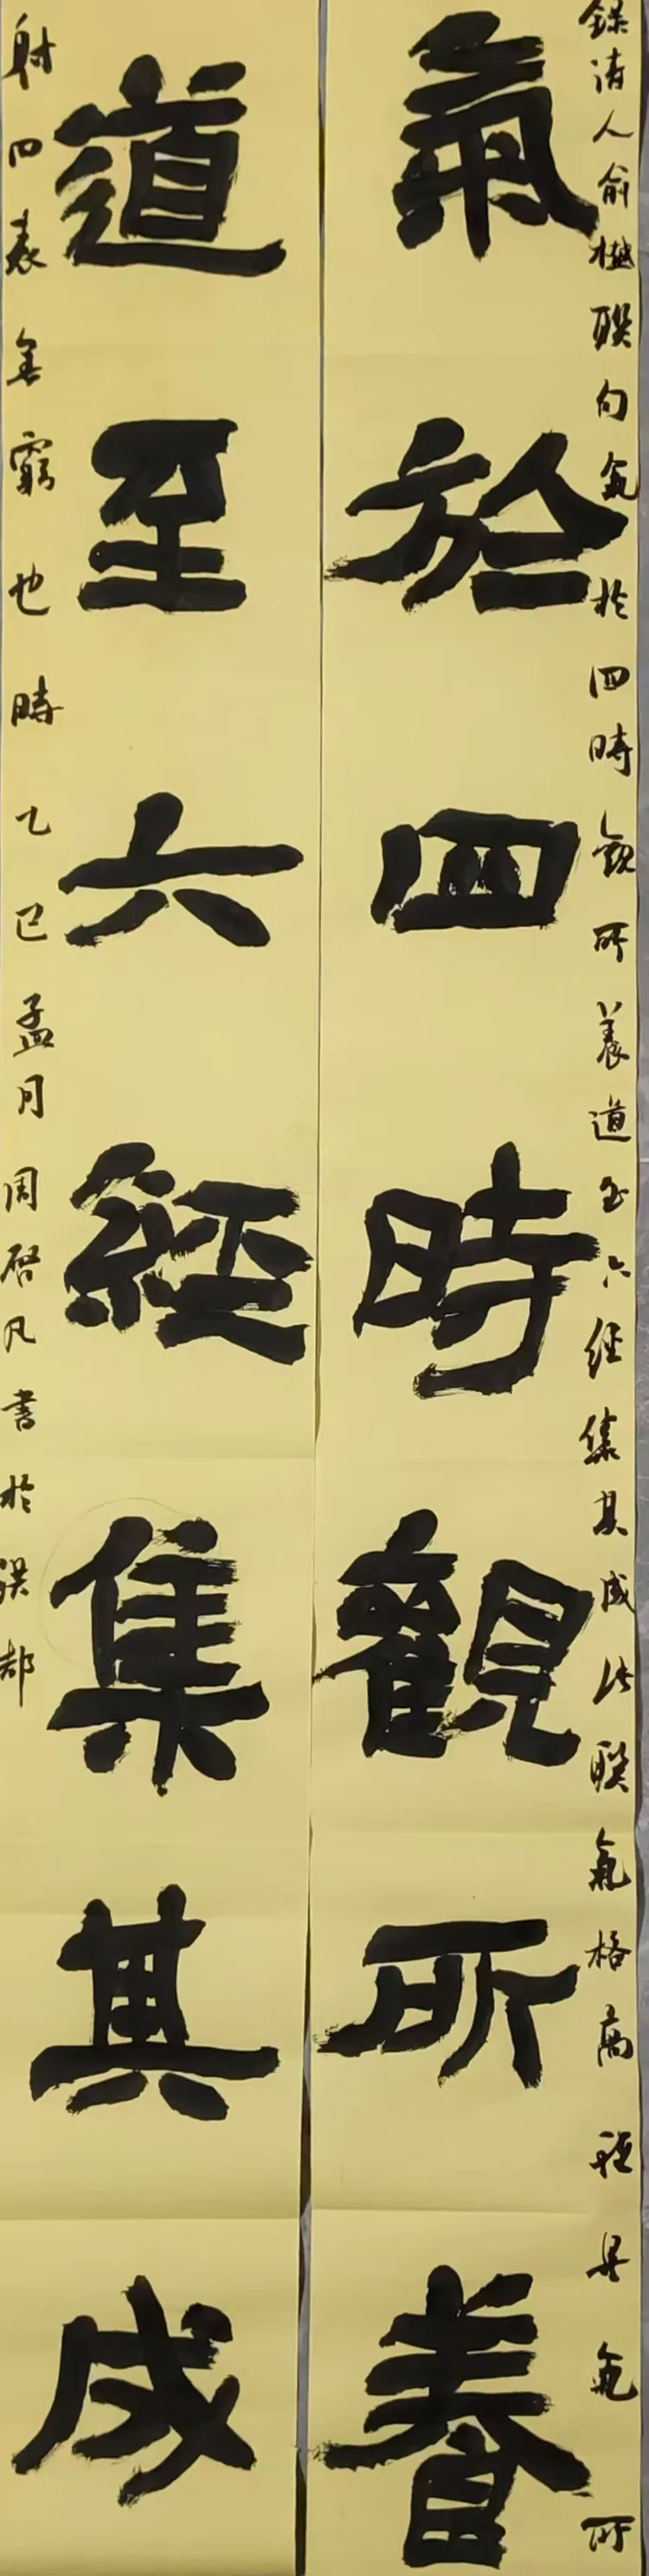 錄清人俞樾聯句氣於四時觀所養道至六經集其成此聯氣格高 具氣所
氣於四時觀所養
道至六經集其成
射四表無窮也時乙巳孟月周啓凡書於洪都